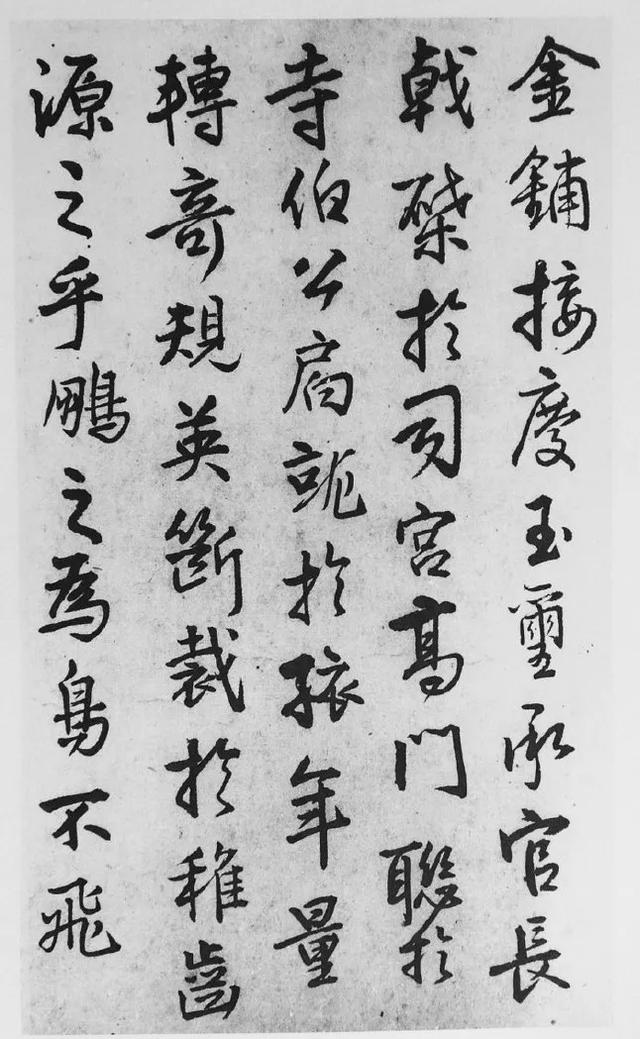 金鋪接慶玉璽承官長
戟棨於司宮高門聯於
寺伯公扃於孩年量
轉奇規英斷裁於稚齒
源之乎鵬之為鳥不飛